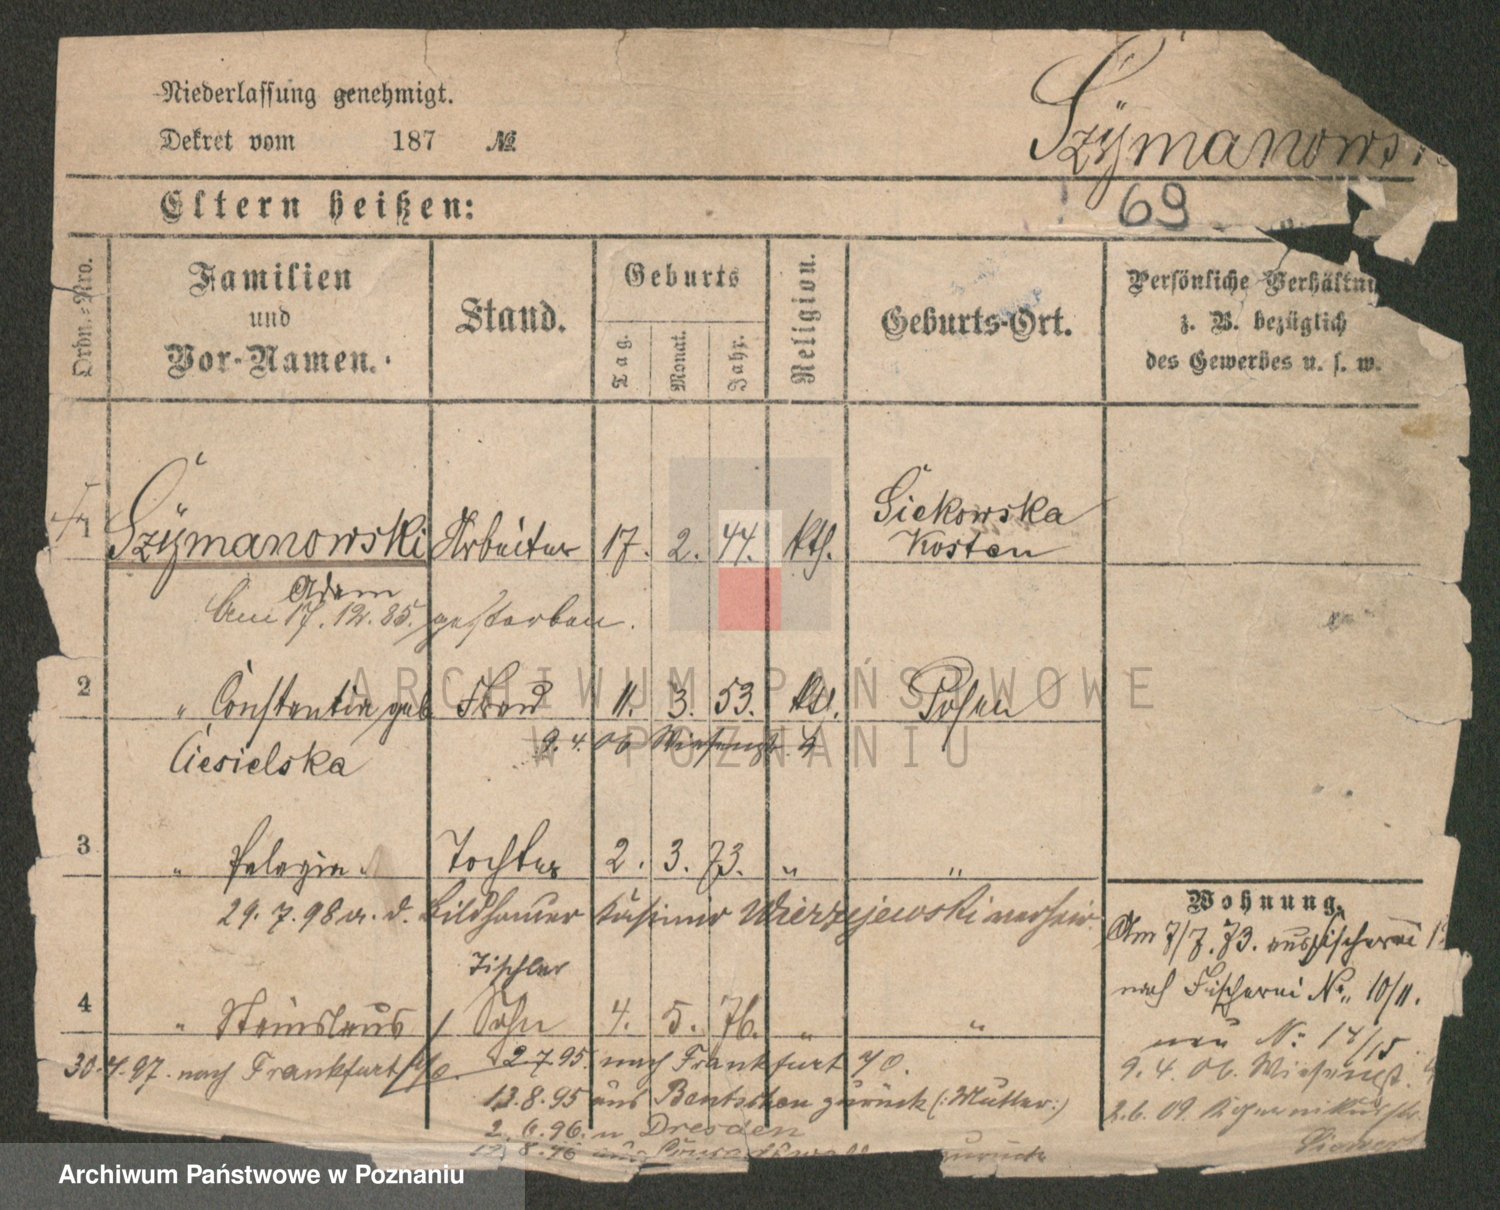 Niederlassung genehmigt.
Dekret vom 187 №
Szymanowski
Eltern heißen:
69
Ordn.-Nro.
Familien
und
Vor-Namen.
Stand.
Geburts
Tag.
Monat.
Jahr.
Religion.
Geburts-Ort.
Persönliche Verhältni
z. B. bezüglich
des Gewerbes u. s. w.
1 Szymanowski Arbeiter 17. 2. 44. kth. Siekowska
Kosten
Adam
Am 17. 12. 85. gestorben.
2 " Constantia geb Frau 11. 3. 53. kth. Posen
9. 4. 06 Wiesenstr. 4
Ciesielska
3 " Pelagia Tochter 2. 3. 73. " "
29. 7. 98 a. d. Bildhauer Kasimir Wierzejewski verheir.
Tischler
4 " Stanislaus / Sohn 4. 5. 76. " "
30. 4. 97. nach Frankfurt a/o. 2. 7. 95. nach Frankfurt a/O.
13. 8. 95 aus Bentschen zurück (:Mutter:)
2. 6. 96. n Dresden
8. 96 aus zurück
Wohnung.
Am 7/7. 73. aus Fischerei
nach Fischerei No. 10/11.
neu No: 14/15.
9. 4. 06. Wiesenstr. 4
2. 6. 09.
ARCHIWUM PAŃSTWOWE
W POZNANIU
Archiwum Państwowe w Poznaniu